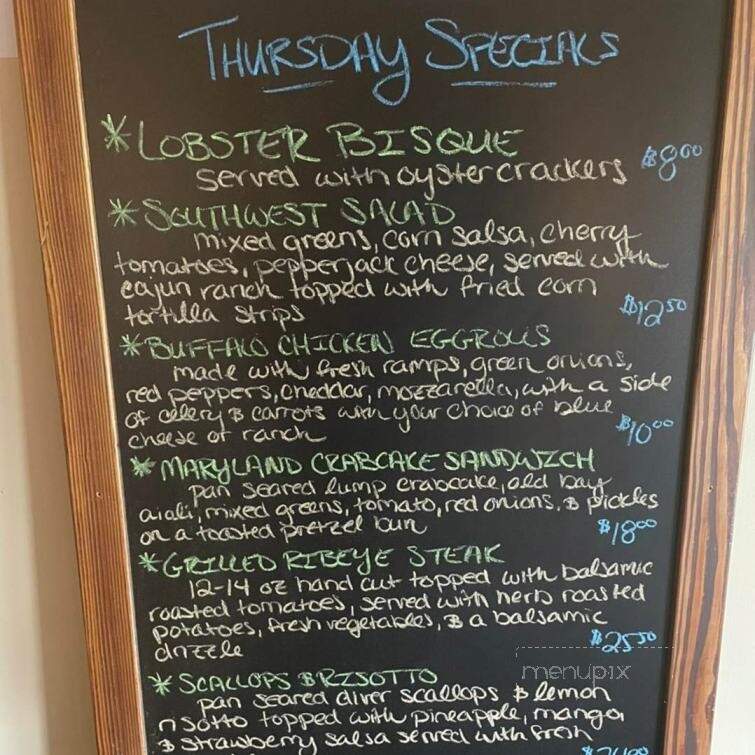 THURSDAY SPECIALS
*LOBSTER BISQUE
served with oyster crackers $8.00
*SOUTHWEST SALAD
mixed greens, corn salsa, cherry
tomatoes, pepperjack cheese, served with
cajun ranch topped with fried corn
tortilla strips $12.50
*BUFFALO CHICKEN EGGROLLS
made with fresh ramps, green onions,
red peppers, cheddar, mozzarella, with a side
of celery & carrots with your choice of blue
cheese or ranch $10.00
*MARYLAND CRABCAKE SANDWICH
pan seared lump crabcake, old bay
aioli, mixed greens, tomato, red onions, & pickles
on a toasted pretzel bun $18.00
*GRILLED RIBEYE STEAK
12-14 oz hand cut topped with balsamic
roasted tomatoes, served with herb roasted
potatoes, fresh vegetables, & a balsamic
drizzle $25.50
menupix
*SCALLOPS & RISOTTO
pan seared diver scallops & lemon
risotto topped with pineapple, mango
& strawberry salsa served with fresh